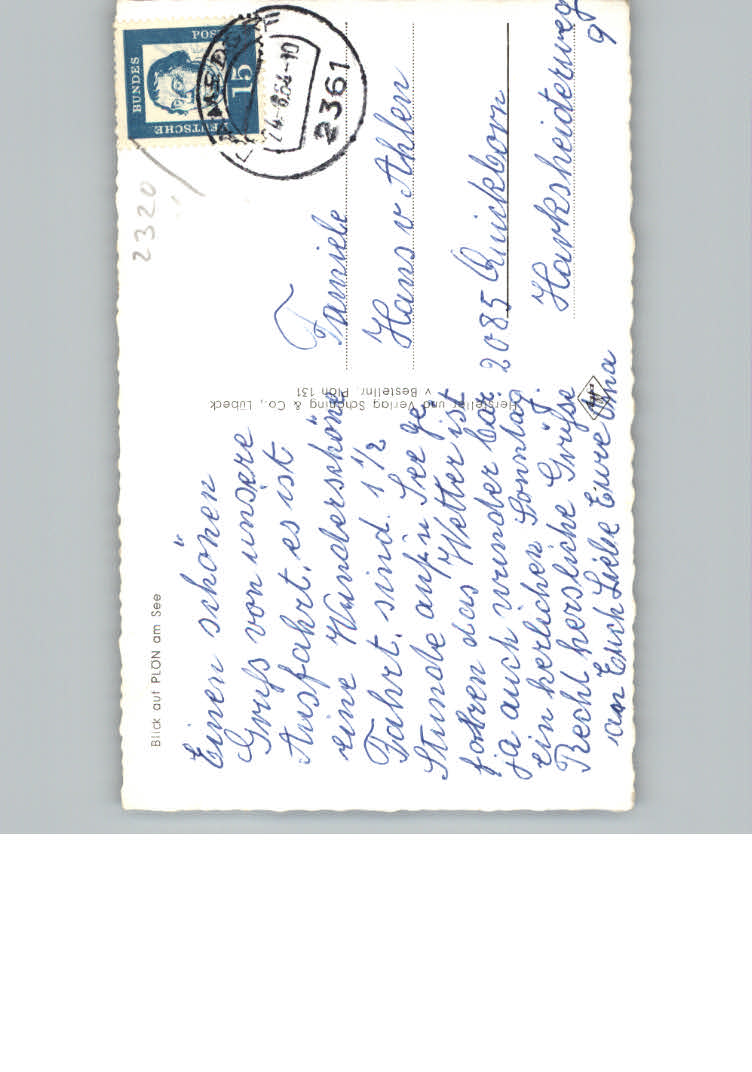 Blick auf PLÖN am See
Einen schönen
Gruß von unsere
Ausfahrt, es ist
eine Wunderschöne
Fahrt, sind 1 1/2
Stunde auf'n See ge
fahren das Wetter ist
ja auch wunder bar.
ein herlichen Sonntag.
Recht hersliche Grüße
an Euch Liebe Eure Oma
Hersteller und Verlag Schöning & Co., Lübeck
v Bestellnr. Plön 131
DEUTSCHE
BUNDES
POST
15
24.6.64-10
2361
2320
Familie
Hans v Ahlen
2085 Quickborn
Harksheiderweg
9